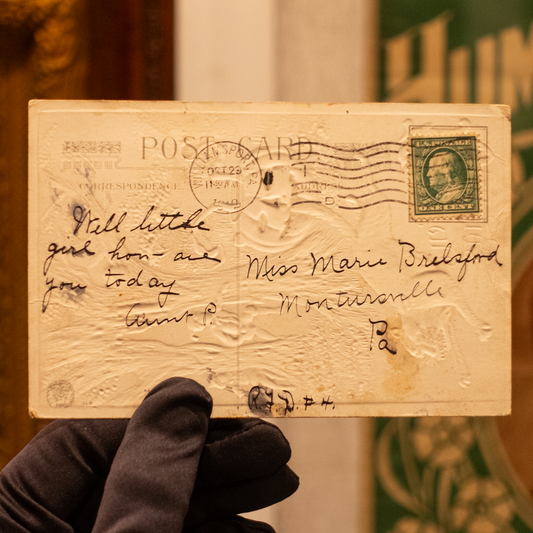 POST CARD
CORRESPONDENCE
ADDRESS
WILLIAMSPORT, PA.
OCT 23
1910
D
ONE CENT
Well little
girl how are
you today
Aunt P.
Miss Marie Brelsford
Montursville
Pa
R.F.D. #4.
HUM